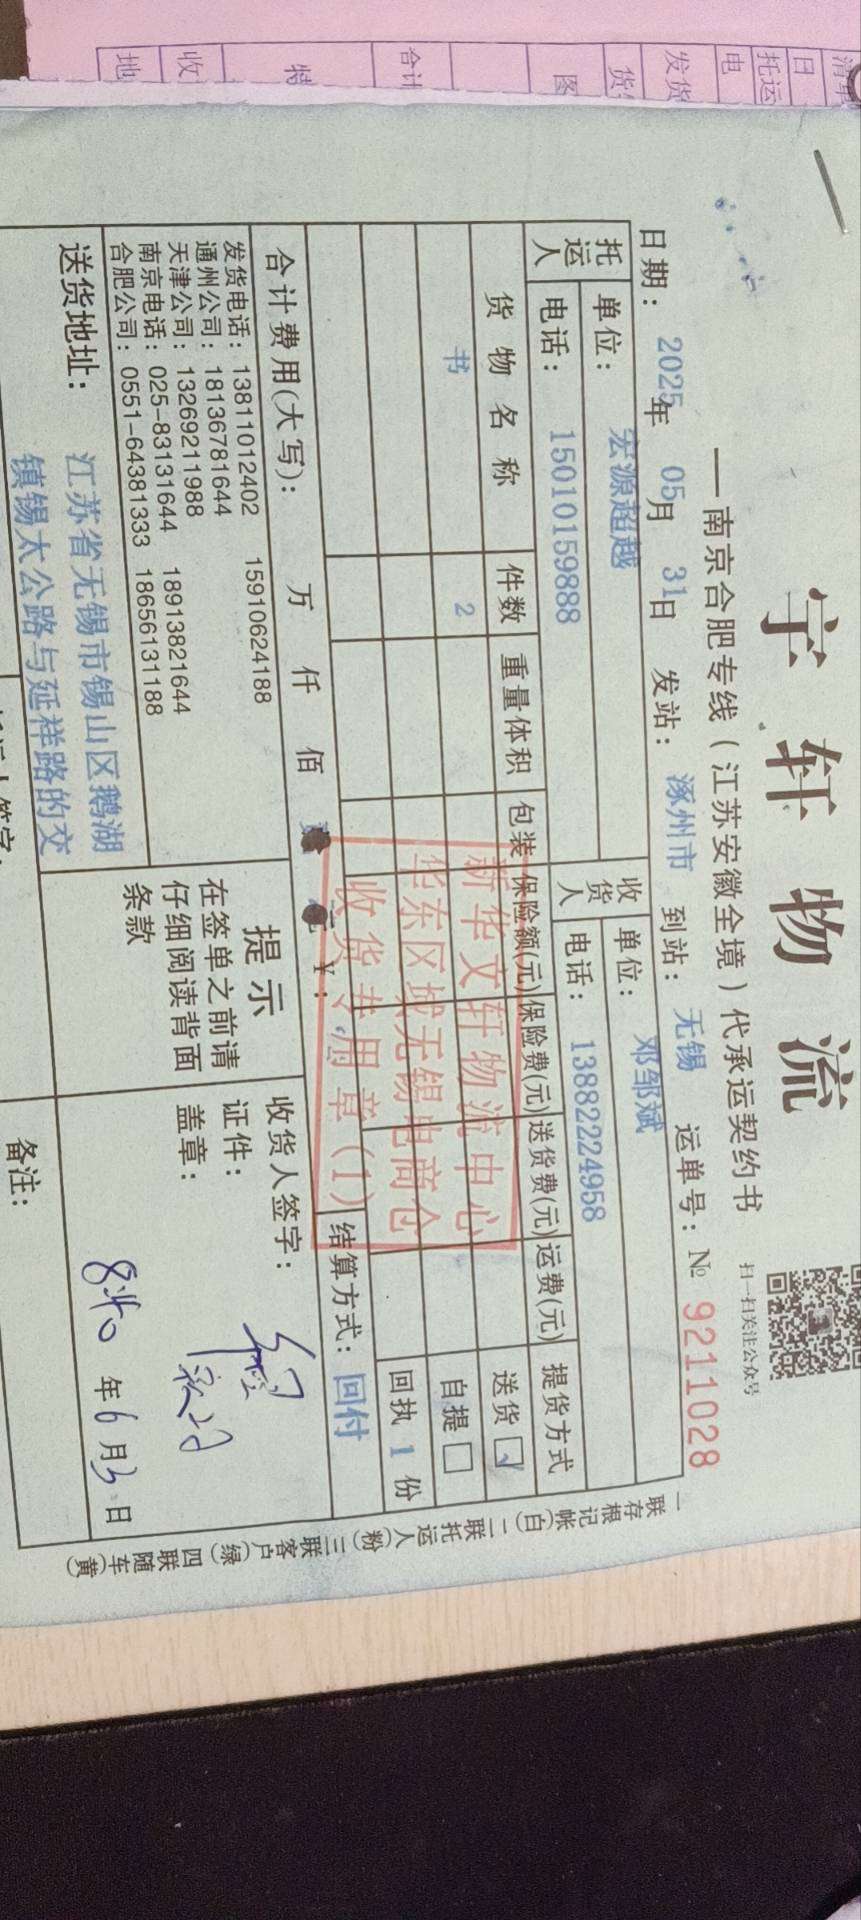 宇轩物流
——南京合肥专线（江苏安徽全境）代承运契约书
扫一扫关注公众号
日期：2025年05月31日 发站：涿州市 到站：无锡 运单号：№ 9211028
托运人 单位：宏源超越 收货人 单位：邓邹斌
电话：15010159888 电话：13882224958
货物名称 件数 重量体积 包装 保险额(元) 保险费(元) 送货费(元) 运费(元) 提货方式
书 2 送货☑
自提□
回执 1 份
新华文轩物流中心
华东区域无锡电商仓
收货专用章(1)
合计费用(大写)： 万 仟 佰 ¥： 结算方式：回付
发货电话：13811012402 15910624188
通州公司：18136781644
天津公司：13269211988
南京电话：025-83131644 18913821644
合肥公司：0551-64381333 18656131188
提示
在签单之前请
仔细阅读背面
条款
收货人签字：
证件：
盖章：
年6月3日
送货地址：江苏省无锡市锡山区鹅湖
镇锡太公路与延祥路的交
备注：
一联存根记帐(白) 二联托运人(粉) 三联客户(绿) 四联随车(黄)
日
托运
电
发货
货
图
合计
特
收
地